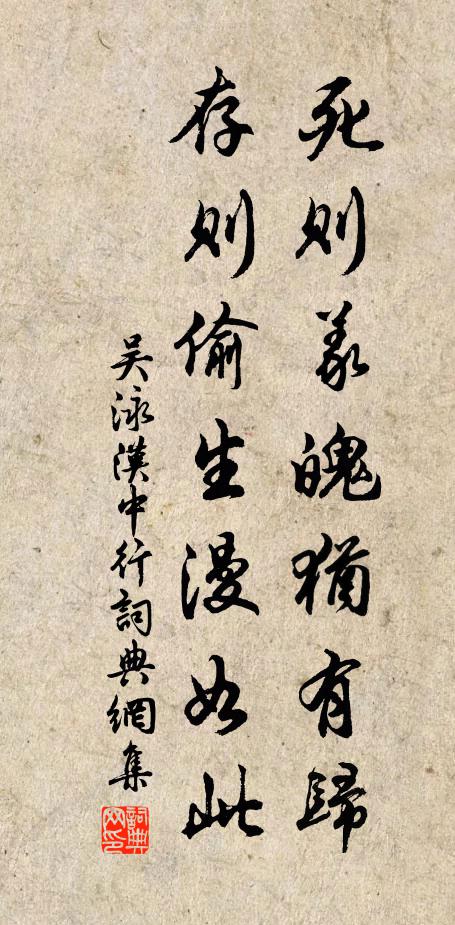 死则義魄猶有歸
存则偷生漫如此
吴泳漢中行詞典網集
詞典网印